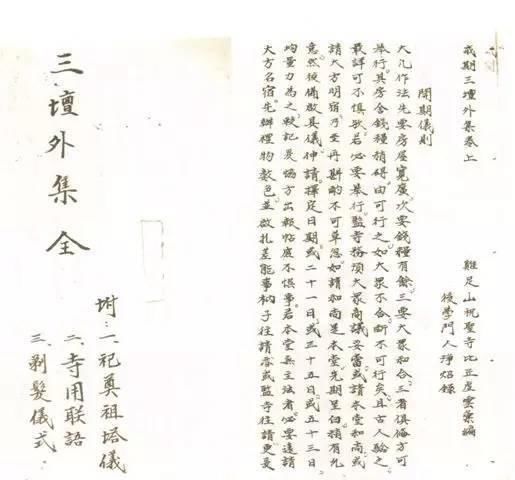 戒期三壇外集卷上
雞足山祝聖寺比丘虛雲編
後學門人淨焰錄
開期儀則
大凡作法先要房屋寬廣次要錢糧有餘三要大眾和合三者俱俻方可
舉行其房舍錢糧稍碍由可行之如大眾不合斷不可行矣且古人驗之
最詳可不慎歟若必要舉行監寺務須大眾商議妥當或請本堂和尚或
請大方明宿乃至再斟酌不可草忽如請和尚是本堂先期呈白稍有允
意然後俻啟具儀伸請擇定日期或二十一日或三十五日或五十三日
均量力為之記是方出報帖底不悞事若本堂無主法者必要遠請
大方名宿先辦禮物數色並啟扎差能事衲子往請或監寺往請更妥
三壇外集 全
附：一、祀奠祖塔儀
二、寺用联語
三、剃髮儀式